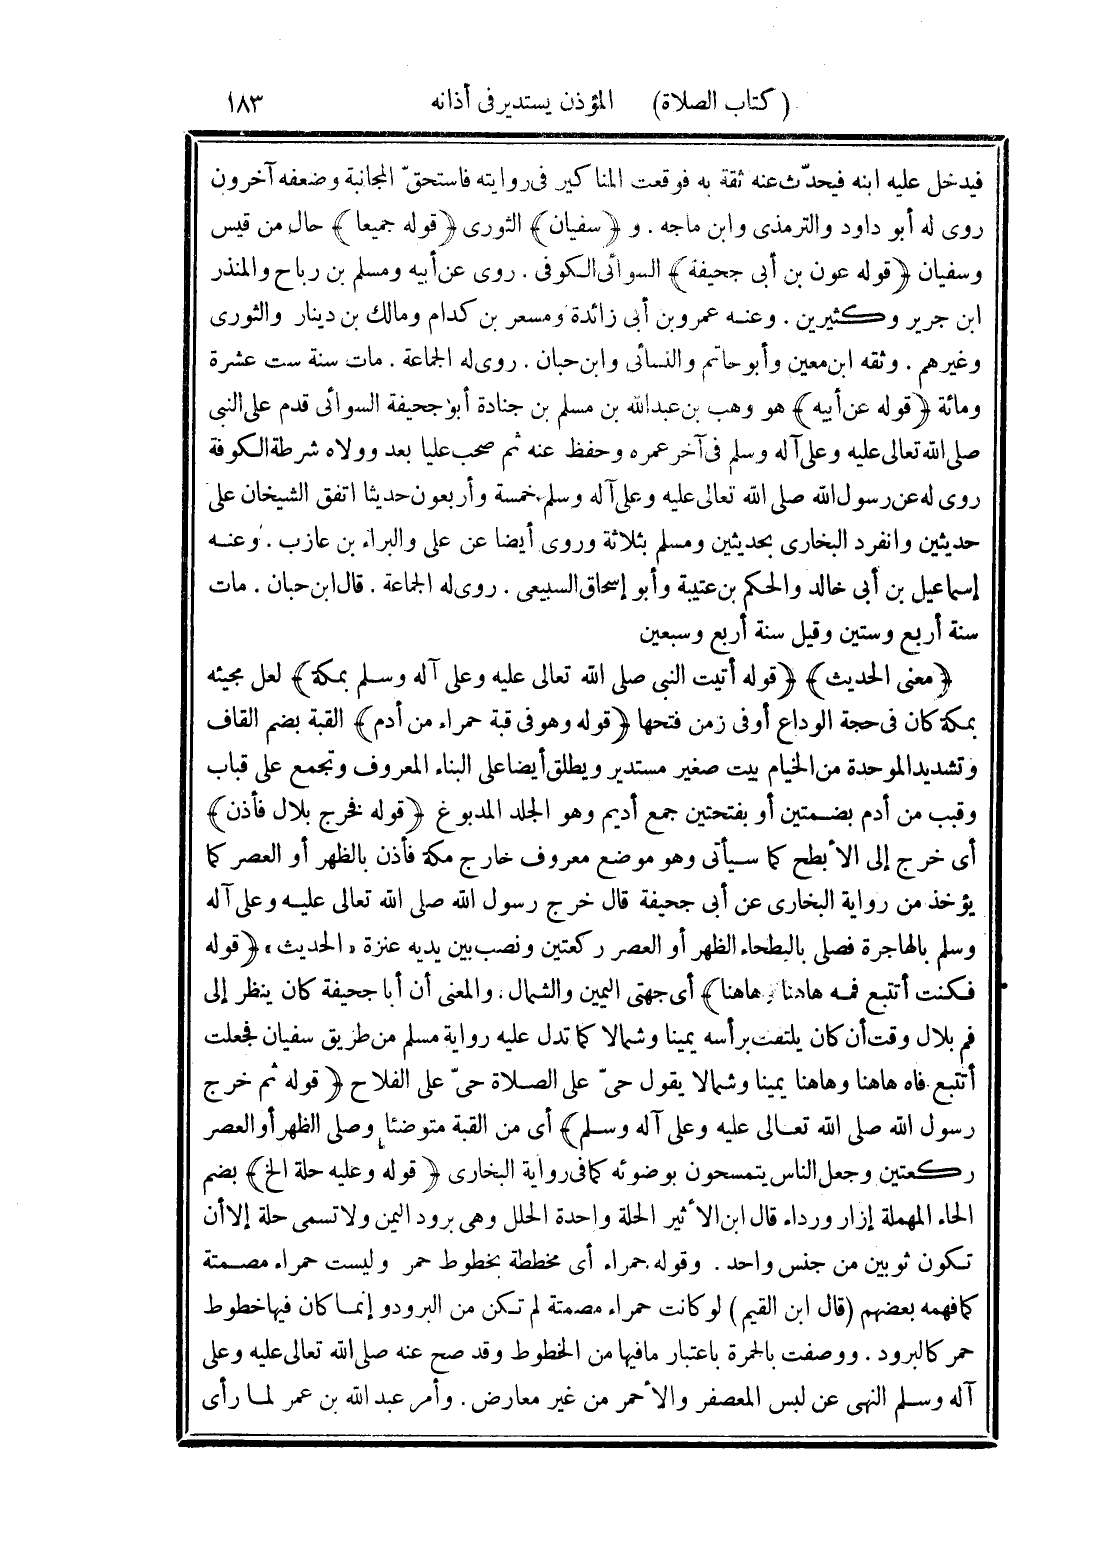 (كتاب الصلاة) المؤذن يستدير فى أذانه ١٨٣
فيدخل عليه ابنه فيحدّث عنه ثقة به فوقعت المناكير فى روايته فاستحقّ المجانبة وضعفه آخرون
روى له أبو داود والترمذى وابن ماجه . و ﴿سفيان﴾ الثورى ﴿قوله جميعا﴾ حال من قيس
وسفيان ﴿قوله عون بن أبى جحيفة﴾ السوائى الكوفى . روى عن أبيه ومسلم بن رباح والمنذر
ابن جرير وكثيرين . وعنه عمرو بن أبى زائدة ومسعر بن كدام ومالك بن دينار والثورى
وغيرهم . وثقه ابن معين وأبو حاتم والنسائى وابن حبان . روى له الجماعة . مات سنة ست عشرة
ومائة ﴿قوله عن أبيه﴾ هو وهب بن عبدالله بن مسلم بن جنادة أبو جحيفة السوائى قدم على النبى
صلى الله تعالى عليه وعلى آله وسلم فى آخر عمره وحفظ عنه ثم صحب عليا بعد وولاه شرطة الكوفة
روى له عن رسول الله صلى الله تعالى عليه وعلى آله وسلم خمسة وأربعون حديثا اتفق الشيخان على
حديثين وانفرد البخارى بحديثين ومسلم بثلاثة وروى أيضا عن على والبراء بن عازب . وعنه
إسماعيل بن أبى خالد والحكم بن عتيبة وأبو إسحاق السبيعى . روى له الجماعة . قال ابن حبان . مات
سنة أربع وستين وقيل سنة أربع وسبعين
﴿معنى الحديث﴾ ﴿قوله أتيت النبى صلى الله تعالى عليه وعلى آله وسلم بمكة﴾ لعل مجيئه
بمكة كان فى حجة الوداع أو فى زمن فتحها ﴿قوله وهو فى قبة حمراء من أدم﴾ القبة بضم القاف
وتشديد الموحدة من الخيام بيت صغير مستدير ويطلق أيضا على البناء المعروف وتجمع على قباب
وقبب من أدم بضمتين أو بفتحتين جمع أديم وهو الجلد المدبوغ ﴿قوله فخرج بلال فأذن﴾
أى خرج إلى الأبطح كما سيأتى وهو موضع معروف خارج مكة فأذن بالظهر أو العصر كما
يؤخذ من رواية البخارى عن أبى جحيفة قال خرج رسول الله صلى الله تعالى عليه وعلى آله
وسلم بالهاجرة فصلى بالبطحاء الظهر أو العصر ركعتين ونصب بين يديه عنزة «الحديث» ﴿قوله
فكنت أتتبع فمه هاهنا وهاهنا﴾ أى جهتى اليمين والشمال. والمعنى أن أبا جحيفة كان ينظر إلى
فم بلال وقت أن كان يلتفت برأسه يمينا وشمالا كما تدل عليه رواية مسلم من طريق سفيان فجعلت
أتتبع فاه هاهنا وهاهنا يمينا وشمالا يقول حىّ على الصلاة حىّ على الفلاح ﴿قوله ثم خرج
رسول الله صلى الله تعالى عليه وعلى آله وسلم﴾ أى من القبة متوضئا وصلى الظهر أو العصر
ركعتين وجعل الناس يتمسحون بوضوئه كما فى رواية البخارى ﴿قوله وعليه حلة الخ﴾ بضم
الحاء المهملة إزار ورداء قال ابن الأثير الحلة واحدة الحلل وهى برود اليمن ولا تسمى حلة إلا أن
تكون ثوبين من جنس واحد . وقوله حمراء أى مخططة بخطوط حمر وليست حمراء مصمتة
كما فهمه بعضهم (قال ابن القيم) لو كانت حمراء مصمتة لم تكن من البرود وإنما كان فيها خطوط
حمر كالبرود . ووصفت بالحمرة باعتبار ما فيها من الخطوط وقد صح عنه صلى الله تعالى عليه وعلى
آله وسلم النهى عن لبس المعصفر والأحمر من غير معارض . وأمر عبد الله بن عمر لما رأى